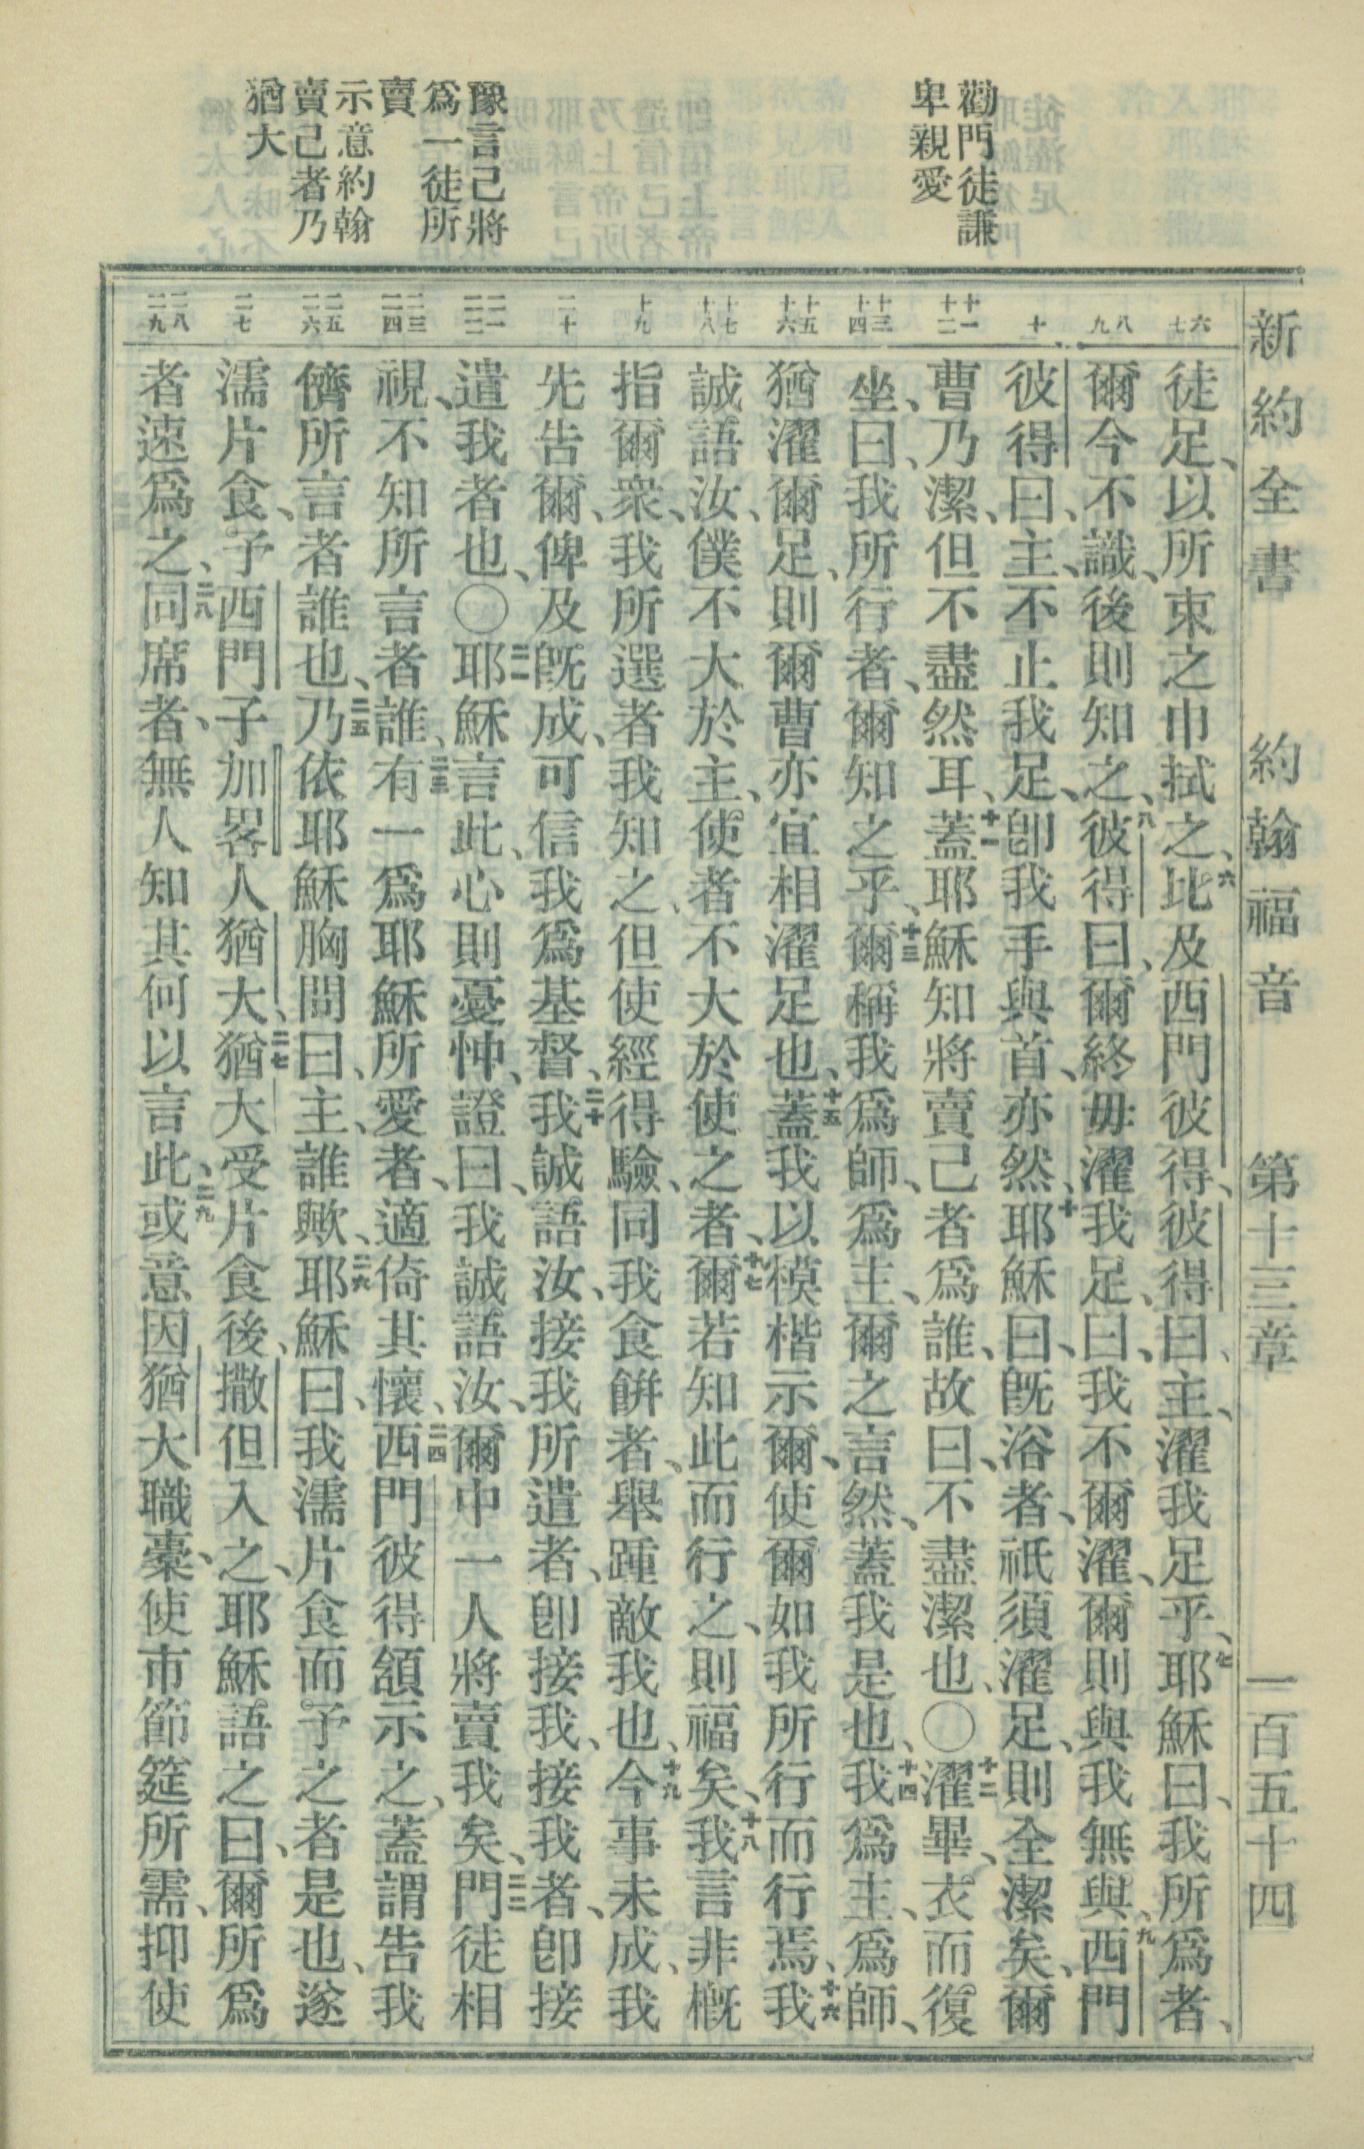 新約全書 約翰福音 第十三章 一百五十四
勸門徒謙
卑親愛
豫言己將
爲一徒所
賣
示意約翰
賣己者乃
猶大
六 七
八 九
十
十一 十二
十三 十四
十五 十六
十七 十八
十九
二十
二一 二二
二三 二四
二五 二六
二七
二八 二九
徒足、以所束之巾拭之、六比及西門彼得、彼得曰、主、濯我足乎、七耶穌曰、我所爲者、
爾今不識、後則知之、八彼得曰、爾終毋濯我足、曰、我不爾濯、爾則與我無與、九西門
彼得曰、主、不止我足、卽我手與首、亦然、十耶穌曰、旣浴者、祇須濯足、則全潔矣、爾
曹乃潔、但不盡然耳、十一蓋耶穌知將賣己者爲誰、故曰、不盡潔也、〇十二濯畢、衣而復
坐、曰、我所行者、爾知之乎、十三爾稱我爲師、爲主、爾之言然、蓋我是也、十四我爲主、爲師、
猶濯爾足、則爾曹亦宜相濯足也、十五蓋我以模楷示爾、使爾如我所行而行焉、十六我
誠語汝、僕不大於主、使者不大於使之者、十七爾若知此而行之、則福矣、十八我言非概
指爾衆、我所選者我知之、但使經得驗、同我食餅者、舉踵敵我也、十九今事未成、我
先吿爾、俾及旣成、可信我爲基督、二十我誠語汝、接我所遣者、卽接我、接我者、卽接
遣我者也、〇二一耶穌言此、心則憂忡、證曰、我誠語汝、爾中一人將賣我矣、二二門徒相
視、不知所言者誰、二三有一爲耶穌所愛者、適倚其懷、二四西門彼得頷示之、蓋謂吿我
儕所言者誰也、二五乃依耶穌胸問曰、主、誰歟、二六耶穌曰、我濡片食而予之者是也、遂
濡片食、予西門子加畧人猶大、二七猶大受片食後、撒但入之、耶穌語之曰、爾所爲
者速爲之、二八同席者、無人知其何以言此、二九或意因猶大職橐、使市節筵所需、抑使